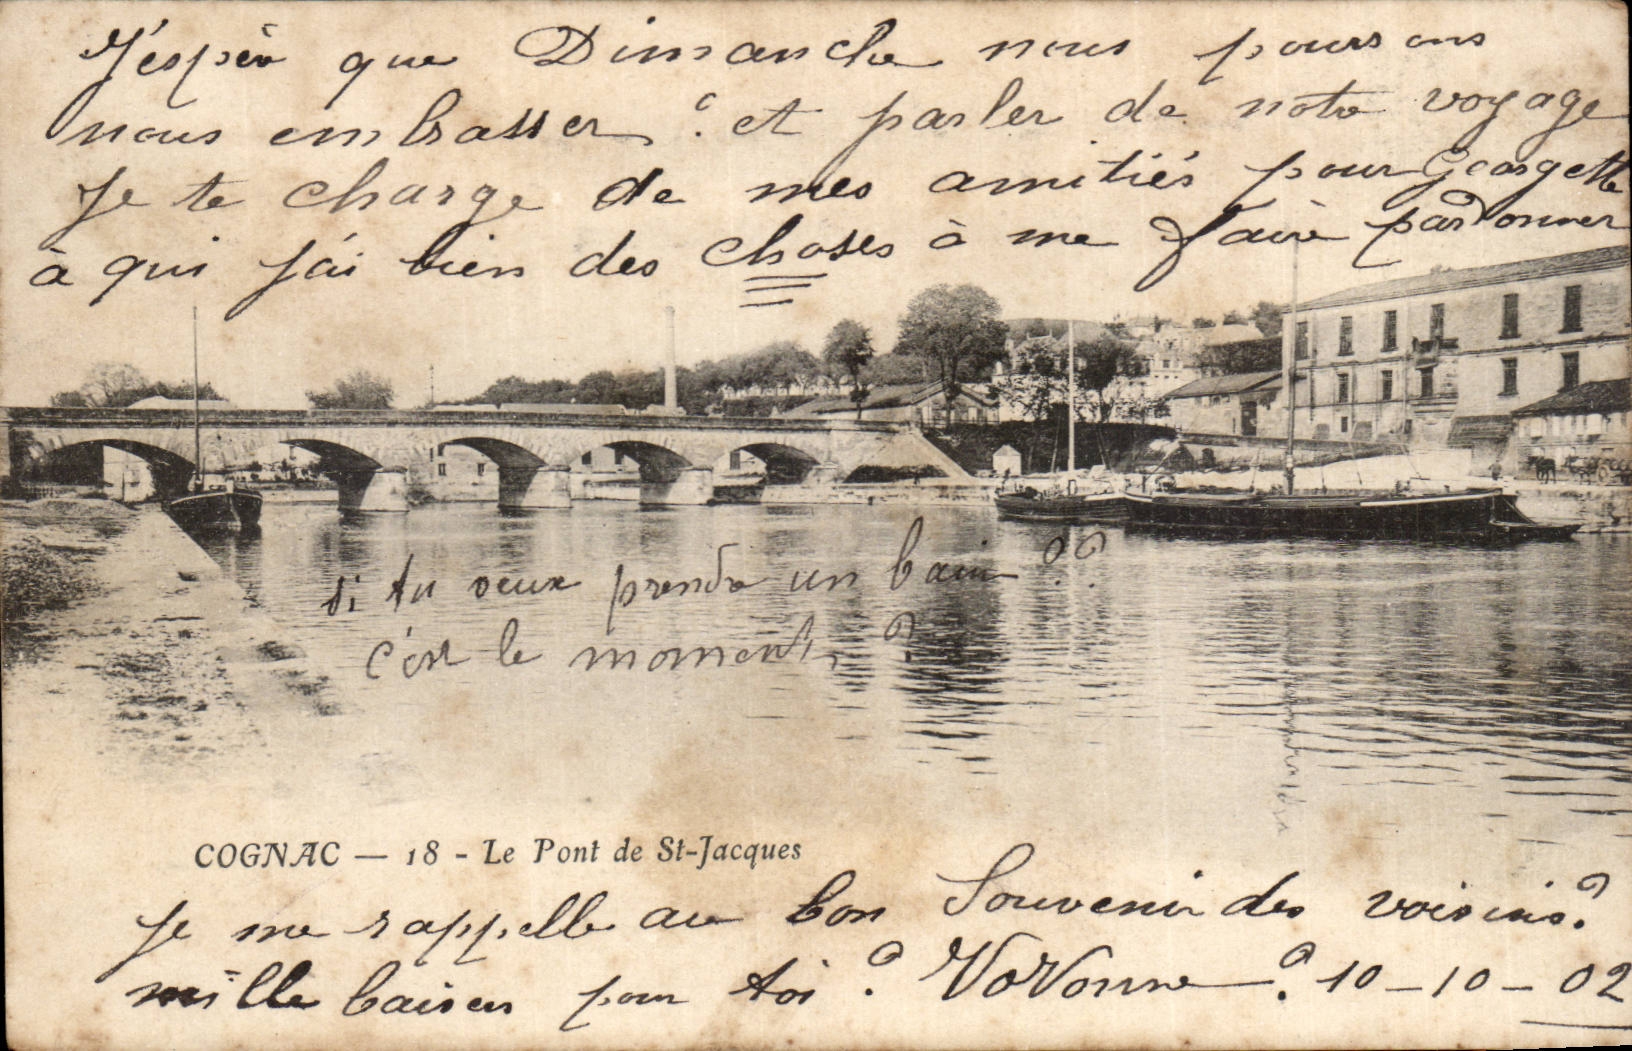 J'espère que Dimanche nous pourrons
nous embrasser ? et parler de notre voyage
Je te charge de mes amitiés pour Georgette
à qui j'ai bien des choses à me faire pardonner
si tu veux prendre un bain ??
c'est le moment, ?
COGNAC — 18 - Le Pont de St-Jacques
Je me rappelle au bon Souvenir des voisins ?
mille baisers pour toi ? VoVonne ? 10-10-02